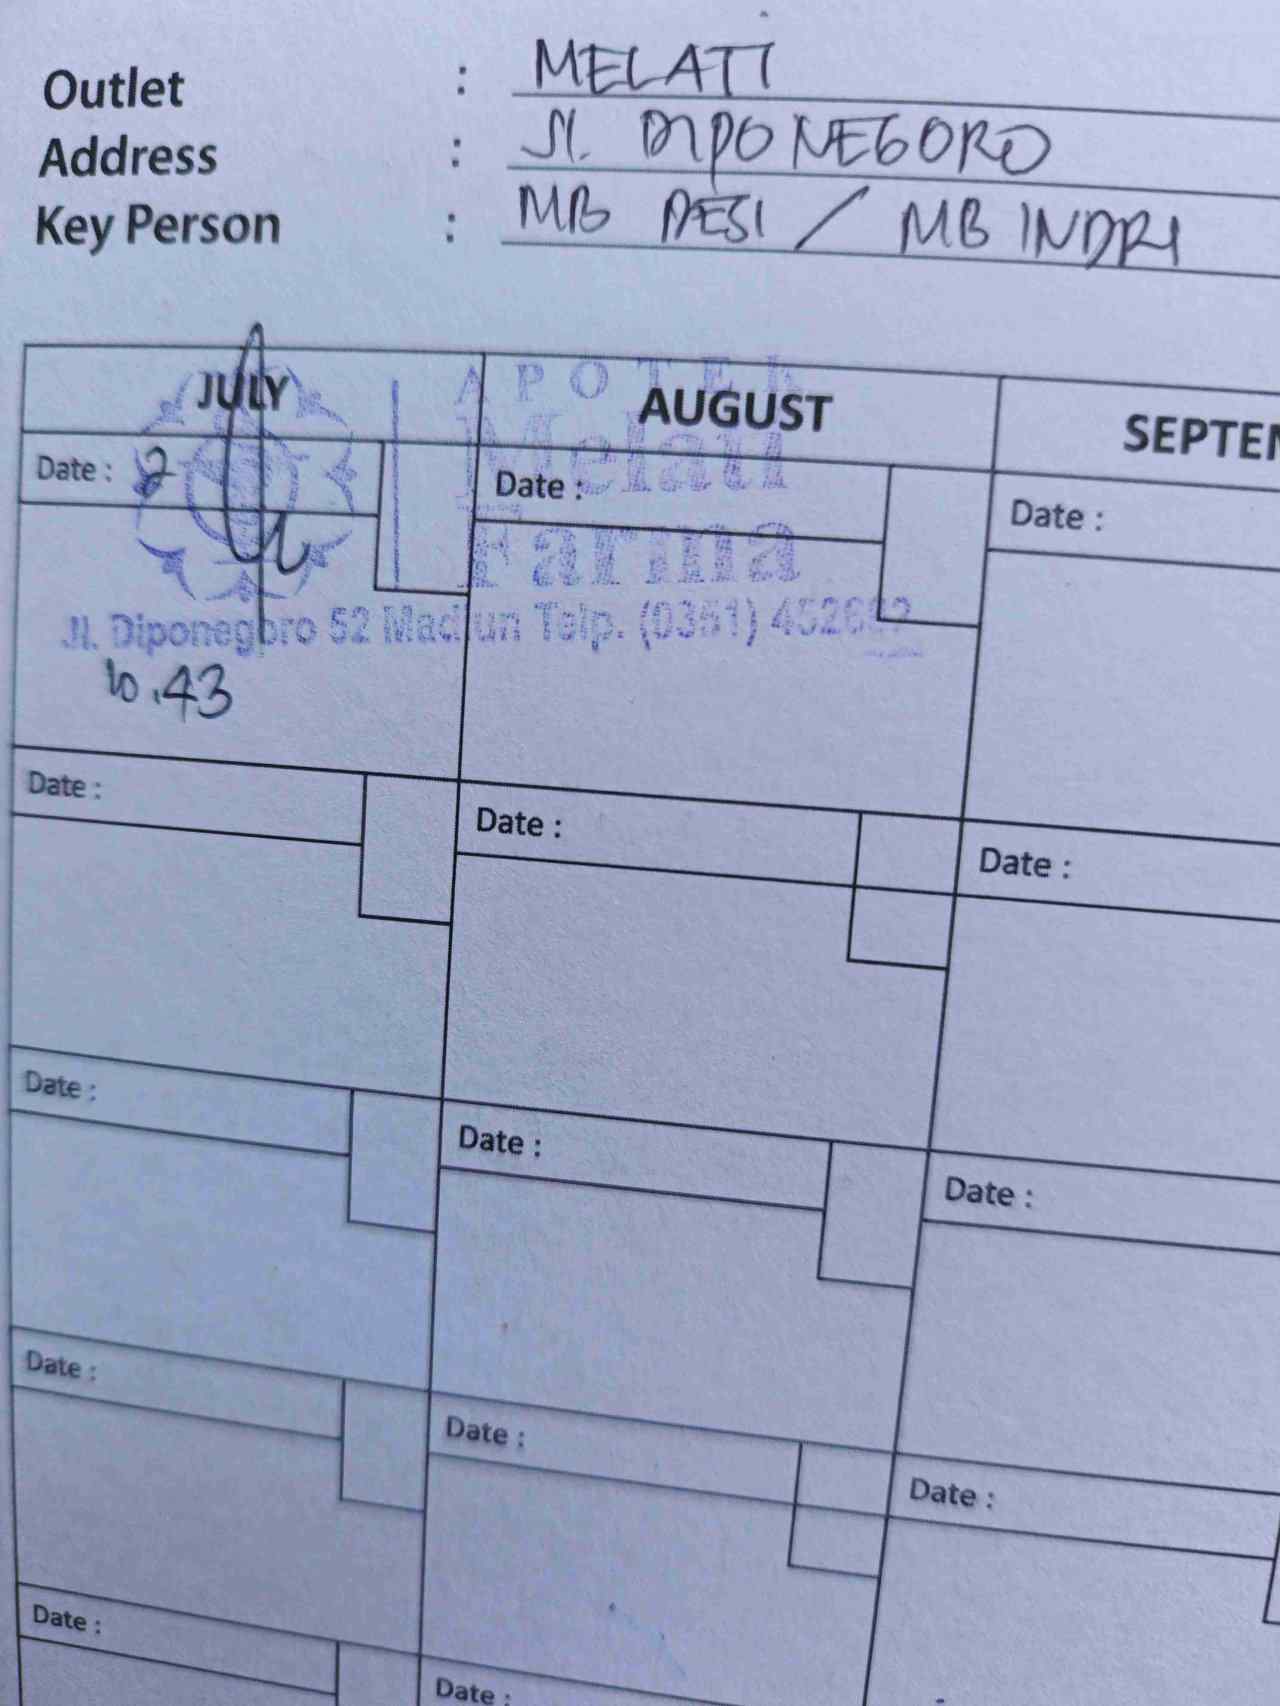 Outlet : MELATI
Address : Jl. DIPONEGORO
Key Person : MB DESI / MB INDRI
JULY
AUGUST
APOTEK
Melati
Farma
Jl. Diponegoro 52 Madiun Telp. (0351)
Date : 2
Date :
Date :
10.43
Date :
Date :
Date :
Date :
Date :
Date :
Date :
Date :
Date :
Date :
Date :